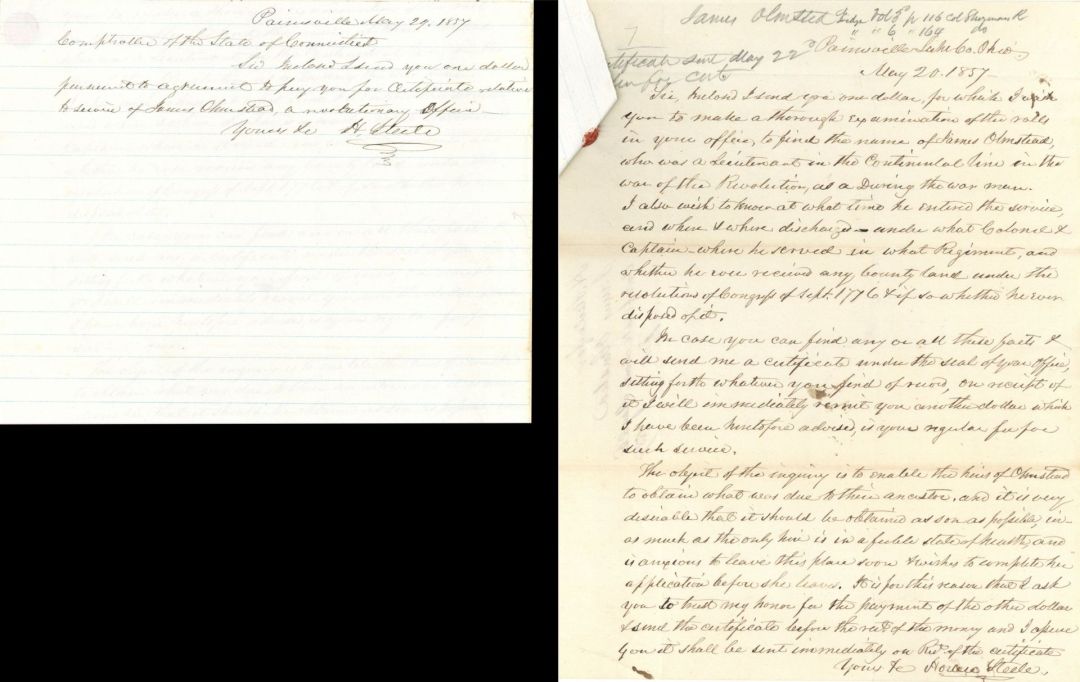 Painsville May 29, 1857
Comptroller of the State of Connecticut
Sir Inclosd I send you one dollar
pursuant to agreement to pay you for Certificate relative
to service of James Olmstead, a revolutionary Officer
Yours &c H. Steele
James Olmsted Index Vol 3 p 116 Col Shearman R
" " 6 " 164 do
7
Certificate sent May 22d
for Cert
Painsville Lake Co. Ohio
May 20. 1857
Sir, Inclosd I send you one dollar, for which I wish
you to make a thorough examination of the rolls
in your office, to find the name of James Olmstead,
who was a Lieutenant in the Continental line in the
war of the Revolution, as a During the war man.
I also wish to know at what time he entered the service,
and when & where discharged - under what Colonel &
Captain - where he served in what Regiment, and
whether he ever received any bounty land under the
resolutions of Congress of Sept. 1776 & if so whether he ever
disposed of it.
In case you can find any or all these facts &
will send me a certificate under the seal of your Office,
setting forth whatever you find of record, on receipt of
it I will immediately remit you another dollar which
I have been heretofore advised, is your regular fee for
such service.
The object of the inquiry is to enable the heirs of Olmstead
to obtain what was due to their ancestor, and it is very
desirable that it should be obtained as soon as possible, in-
as much as the only heir is in a feeble state of health, and
is anxious to leave this place soon & wishes to complete her
application before she leaves. It is for this reason that I ask
you to trust my honor for the payment of the other dollar
& send the certificate before the rect of the money and I assure
you it shall be sent immediately on Rect of the certificate
Yours &c Horace Steele.